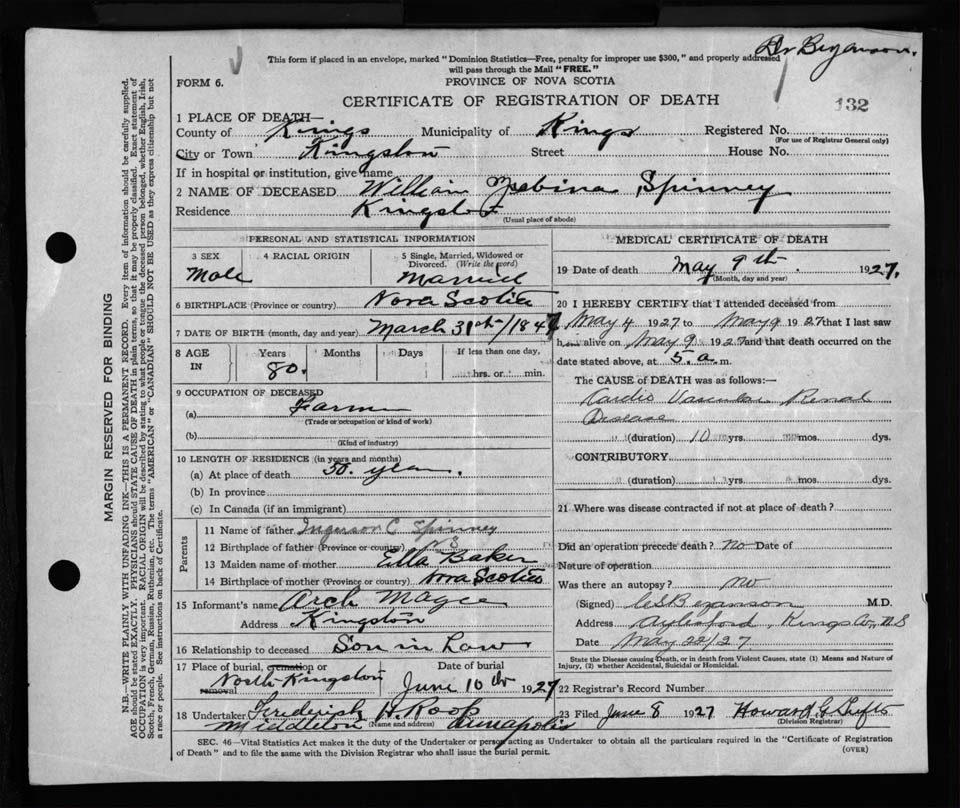 Dr Bezanson.
This form if placed in an envelope, marked "Dominion Statistics—Free, penalty for improper use $300," and properly addressed
will pass through the Mail "FREE."
FORM 6.
PROVINCE OF NOVA SCOTIA
132
CERTIFICATE OF REGISTRATION OF DEATH
1 PLACE OF DEATH—
County of Kings Municipality of Kings Registered No.
(For use of Registrar General only)
City or Town Kingston Street House No.
If in hospital or institution, give name
2 NAME OF DECEASED William Zebina Spinney
Residence Kingston
(Usual place of abode)
PERSONAL AND STATISTICAL INFORMATION
3 SEX 4 RACIAL ORIGIN 5 Single, Married, Widowed or
Divorced. (Write the word)
Male Married
6 BIRTHPLACE (Province or country) Nova Scotia
7 DATE OF BIRTH (month, day and year) March 31st/1847
8 AGE IN Years Months Days If less than one day,
80. hrs. or min.
9 OCCUPATION OF DECEASED
(a) Farmer
(Trade or occupation or kind of work)
(b)
(Kind of industry)
10 LENGTH OF RESIDENCE (in years and months)
(a) At place of death 50. year.
(b) In province
(c) In Canada (if an immigrant)
Parents
11 Name of father Ingerson C Spinney
12 Birthplace of father (Province or country) NS
13 Maiden name of mother Ella Baker
14 Birthplace of mother (Province or country) Nova Scotia
15 Informant's name Arch Magee
Address Kingston
16 Relationship to deceased Son in Law
17 Place of burial, cremation or removal Date of burial
North Kingston June 10th 1927
18 Undertaker Frederick H. Roop
(Name and address)
Middleton Annapolis
MEDICAL CERTIFICATE OF DEATH
19 Date of death May 9th. 1927.
(Month, day and year)
20 I HEREBY CERTIFY that I attended deceased from
May 4 1927 to May 9 1927 that I last saw
him alive on May 9 1927 and that death occurred on the
date stated above, at 5. a. m.
The CAUSE OF DEATH was as follows:—
Cardio Vascular Renal
Disease
(duration) 10 yrs. mos. dys.
CONTRIBUTORY
(duration) yrs. mos. dys.
21 Where was disease contracted if not at place of death?
Did an operation precede death? no Date of
Nature of operation
Was there an autopsy? no
(Signed) Bezanson M.D.
Address Aylesford, Kings Co, N S
Date May 22/27
State the Disease causing Death, or in death from Violent Causes, state (1) Means and Nature of
Injury, (2) whether Accidental, Suicidal or Homicidal.
22 Registrar's Record Number
23 Filed June 8 1927 Howard G
(Division Registrar)
SEC. 46—Vital Statistics Act makes it the duty of the Undertaker or person acting as Undertaker to obtain all the particulars required in the "Certificate of Registration
of Death" and to file the same with the Division Registrar who shall issue the burial permit.
(OVER)
MARGIN RESERVED FOR BINDING
N.B.—WRITE PLAINLY WITH UNFADING INK—THIS IS A PERMANENT RECORD. Every item of information should be carefully supplied.
AGE should be stated EXACTLY. PHYSICIANS should STATE CAUSE OF DEATH in plain terms, so that it may be properly classified. Exact statement of
OCCUPATION is very important. RACIAL ORIGIN will be described by stating to what people or tongue the deceased person belonged, whether English, Irish,
Scotch, French, German, Russian, Ruthenian, etc. The terms "AMERICAN" or "CANADIAN" SHOULD NOT BE USED as they express citizenship but not
a race or people. See instructions on back of Certificate.